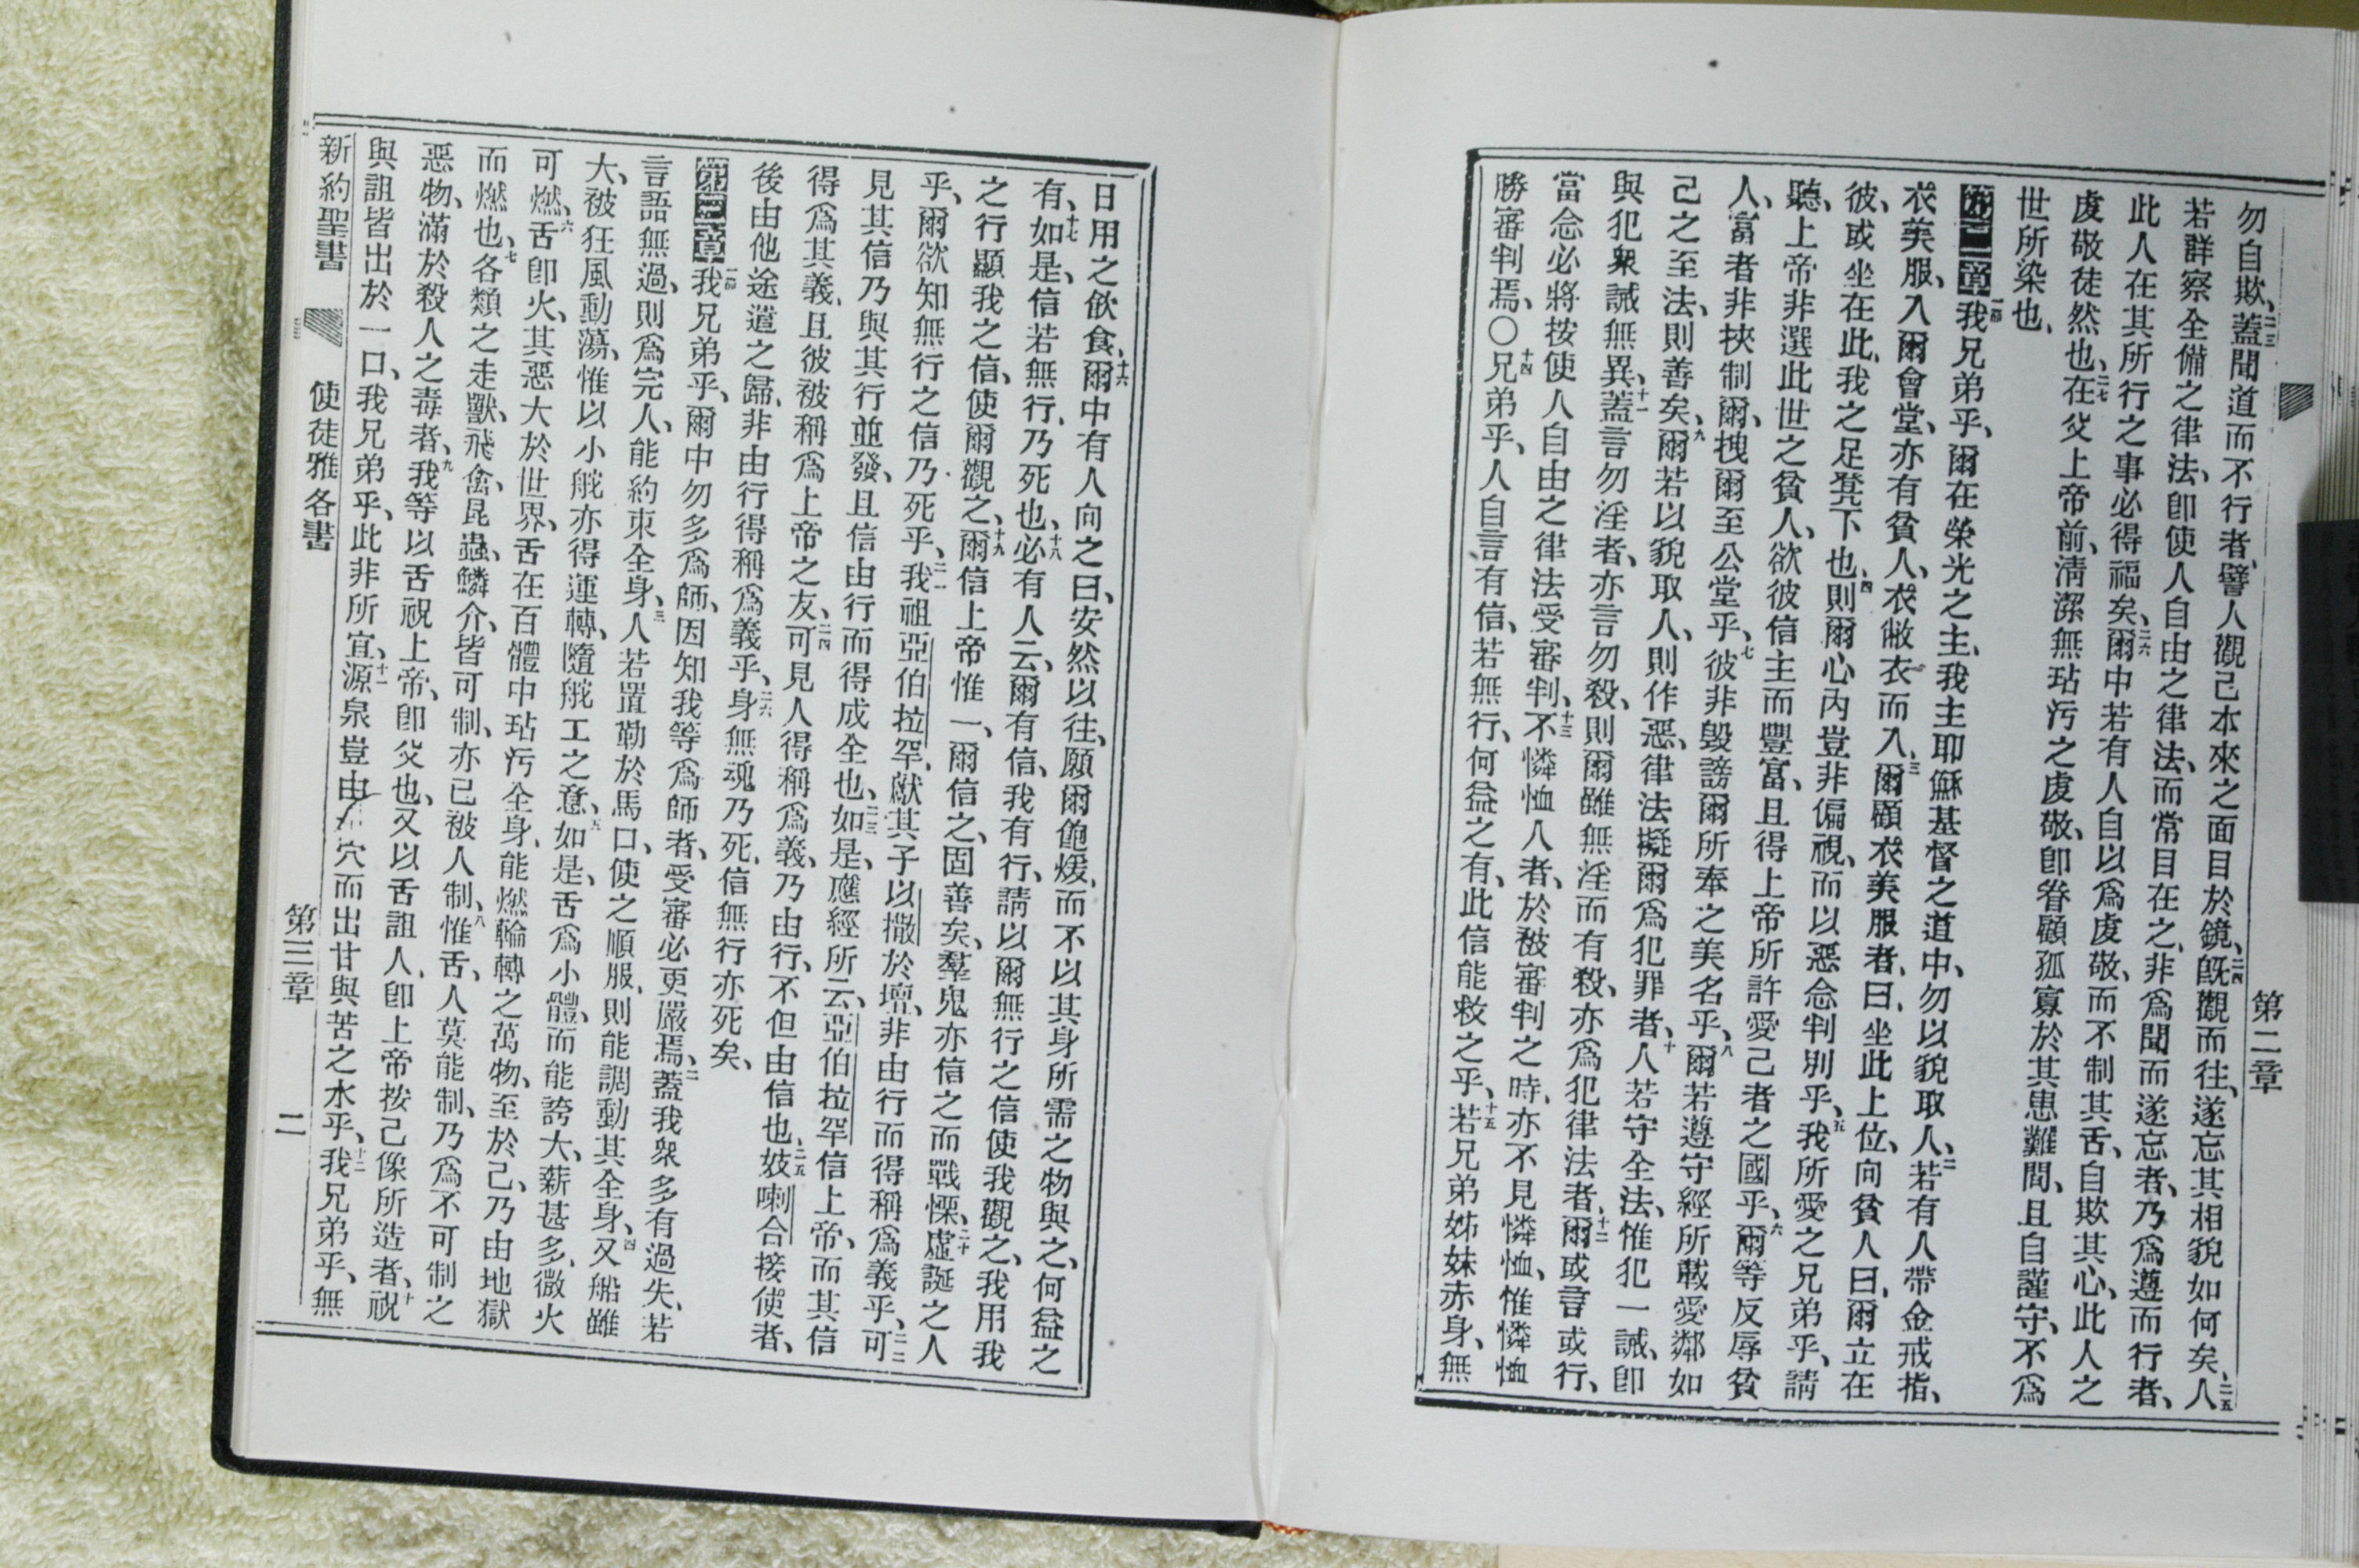 第二章
勿自欺、二三蓋聞道而不行者、譬人觀己本來之面目於鏡、二四旣觀而往、遂忘其相貌如何矣、二五人
若詳察全備之律法、卽使人自由之律法、而常目在之、非爲聞而遂忘者、乃爲遵而行者、
此人在其所行之事必得福矣、二六爾中若有人自以爲虔敬、而不制其舌、自欺其心、此人之
虔敬徒然也、二七在父上帝前、淸潔無玷污之虔敬、卽眷顧孤寡於其患難間、且自謹守、不爲
世所染也、
第二章一節我兄弟乎、爾在榮光之主、我主耶穌基督之道中、勿以貌取人、二若有人帶金戒指、
衣美服、入爾會堂、亦有貧人、衣敝衣而入、三爾顧衣美服者、曰、坐此上位、向貧人曰、爾立在
彼、或坐在此、我之足凳下也、四則爾心內豈非偏視、而以惡念判別乎、五我所愛之兄弟乎、請
聽、上帝非選此世之貧人、欲彼信主而豐富、且得上帝所許愛己者之國乎、六爾等反辱貧
人、富者非挾制爾、拽爾至公堂乎、七彼非毀謗爾所奉之美名乎、八爾若遵守經所載愛鄰如
己之至法、則善矣、九爾若以貌取人、則作惡、律法擬爾爲犯罪者、十人若守全法、惟犯一誡、卽
與犯衆誡無異、十一蓋言勿淫者、亦言勿殺、則爾雖無淫而有殺、亦爲犯律法者、十二爾或言或行、
當念必將按使人自由之律法受審判、十三不憐恤人者、於被審判之時、亦不見憐恤、惟憐恤
勝審判焉、〇十四兄弟乎、人自言、有信、若無行、何益之有、此信能救之乎、十五若兄弟姊妹赤身、無
日用之飮食、十六爾中有人向之曰、安然以往、願爾飽煖、而不以其身所需之物與之、何益之
有、十七如是、信若無行、乃死也、十八必有人云、爾有信、我有行、請以爾無行之信使我觀之、我用我
之行顯我之信、使爾觀之、十九爾信上帝惟一、爾信之、固善矣、羣鬼亦信之而戰慄、二十虛誕之人
乎、爾欲知無行之信乃死乎、二一我祖亞伯拉罕、獻其子以撒於壇、非由行而得稱爲義乎、二二可
見其信乃與其行並發、且信由行而得成全也、二三如是、應經所云、亞伯拉罕信上帝、而其信
得爲其義、且彼被稱爲上帝之友、二四可見人得稱爲義、乃由行、不但由信也、二五妓喇合接使者、
後由他途遣之歸、非由行得稱爲義乎、二六身無魂乃死、信無行亦死矣、
第三章一節我兄弟乎、爾中勿多爲師、因知我等爲師者、受審必更嚴焉、二蓋我衆多有過失、若
言語無過、則爲完人、能約束全身、三人若置勒於馬口、使之順服、則能調動其全身、四又船雖
大、被狂風動蕩、惟以小舵亦得運轉、隨舵工之意、五如是、舌爲小體、而能誇大、薪甚多、微火
可燃、六舌卽火、其惡大於世界、舌在百體中玷污全身、能燃輪轉之萬物、至於己、乃由地獄
而燃也、七各類之走獸、飛禽、昆蟲、鱗介、皆可制、亦已被人制、八惟舌、人莫能制、乃爲不可制之
惡物、滿於殺人之毒者、九我等以舌祝上帝、卽父也、又以舌詛人、卽上帝按己像所造者、十祝
與詛皆出於一口、我兄弟乎、此非所宜、十一源泉豈由穴而出甘與苦之水乎、十二我兄弟乎、無
新約聖書 使徒雅各書 第三章 二